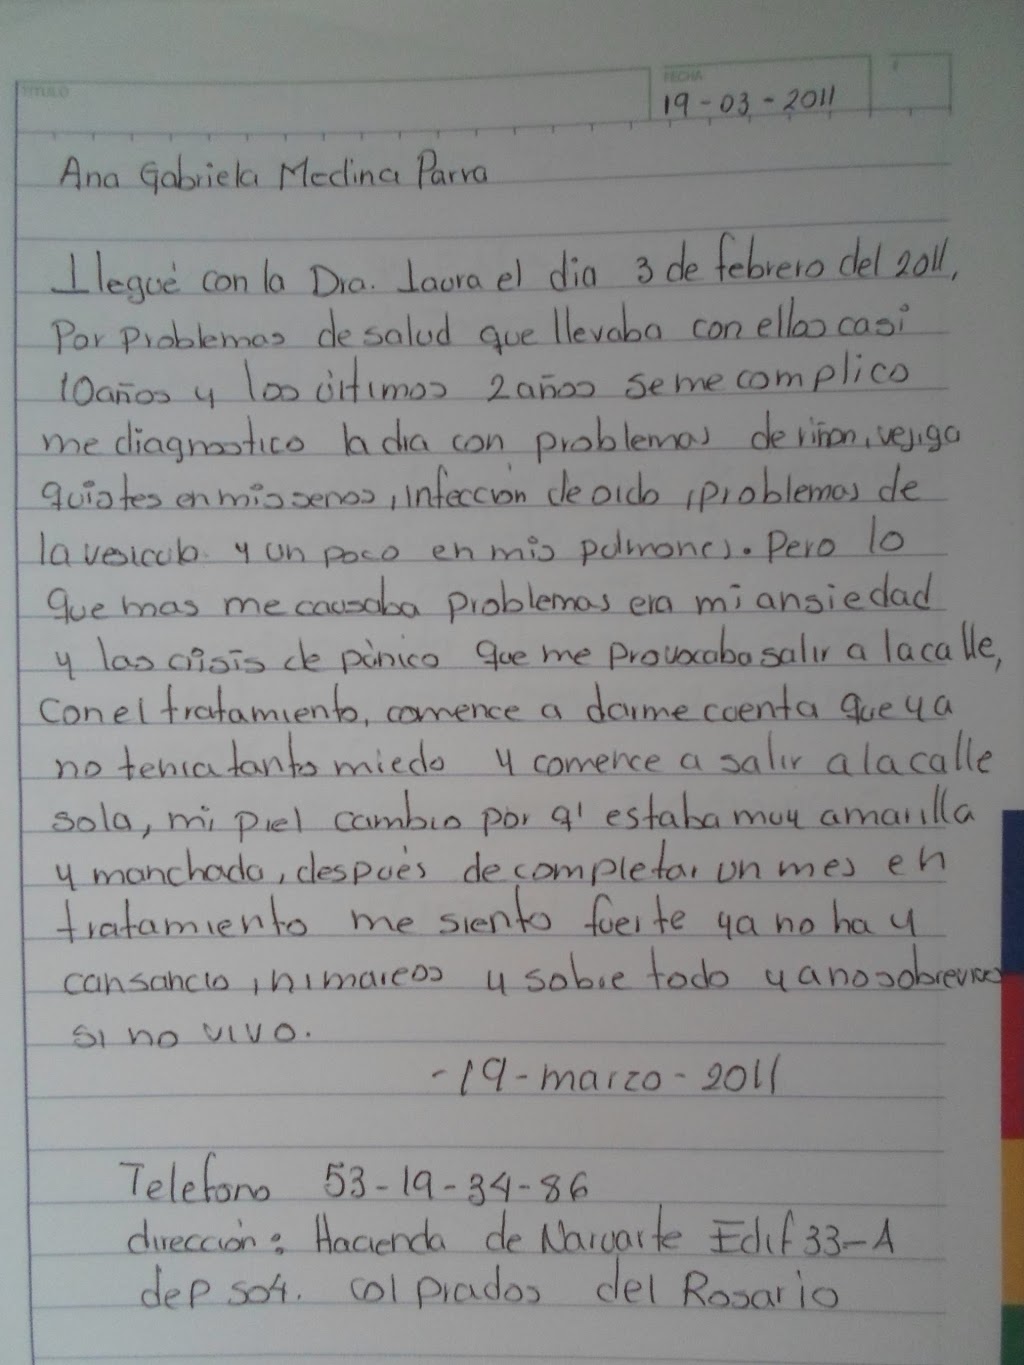 TITULO
FECHA
19-03-2011
Ana Gabriela Medina Parra
Llegué con la Dra. Laura el dia 3 de febrero del 2011,
Por problemas de salud que llevaba con ellos casi
10 años y los últimos 2 años se me complico
me diagnostico la dra con problemas de riñon, vejiga
quistes en mis senos, infección de oido, problemas de
la vesicula. y un poco en mis pulmones. Pero lo
que mas me causaba problemas era mi ansiedad
y las crisis de pánico que me provocaba salir a la calle,
Con el tratamiento, comence a darme cuenta que ya
no tenia tanto miedo y comence a salir a la calle
sola, mi piel cambio por q' estaba muy amarilla
y manchada, después de completar un mes en
tratamiento me siento fuerte ya no hay
cansancio, ni mareos y sobre todo ya no sobrevivo
si no vivo.
-19-marzo-2011
Telefono 53-19-34-86
dirección: Hacienda de Narvarte Edif 33-A
dep 504. col prados del Rosario